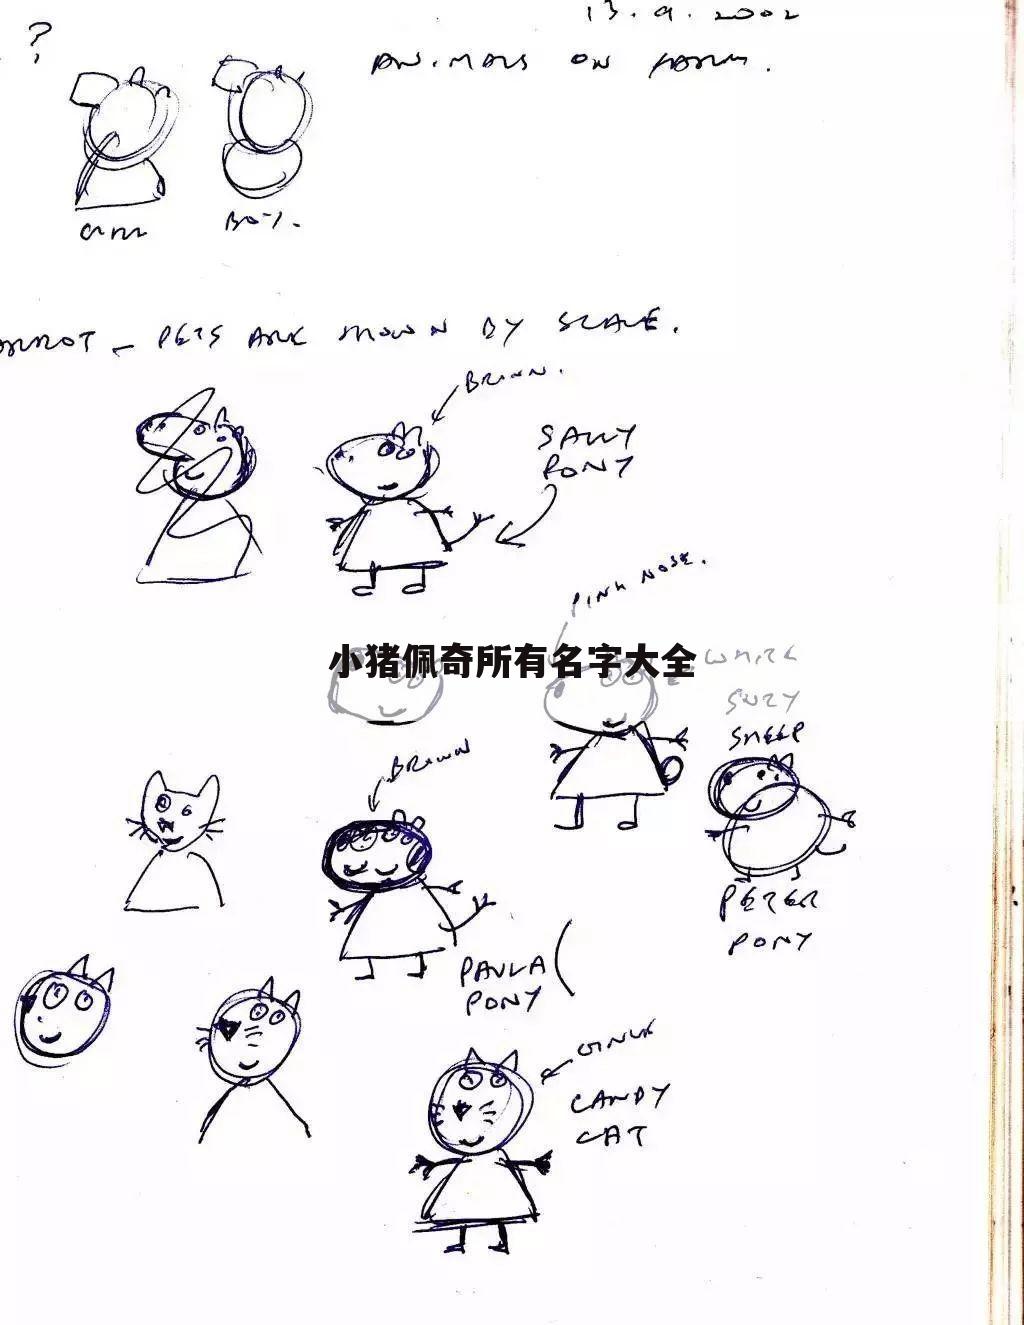 ?
13.9.2002
ANIMALS ON FARM.
GIRL
BOY.
PETS ARE SHOWN BY SCALE.
BROWN.
SALLY
PONY
PINK NOSE.
小猪佩奇所有名字大全
WHITE
SUZY
SHEEP
BROWN
PETER
PONY
PAULA
PONY
CANDY
CAT